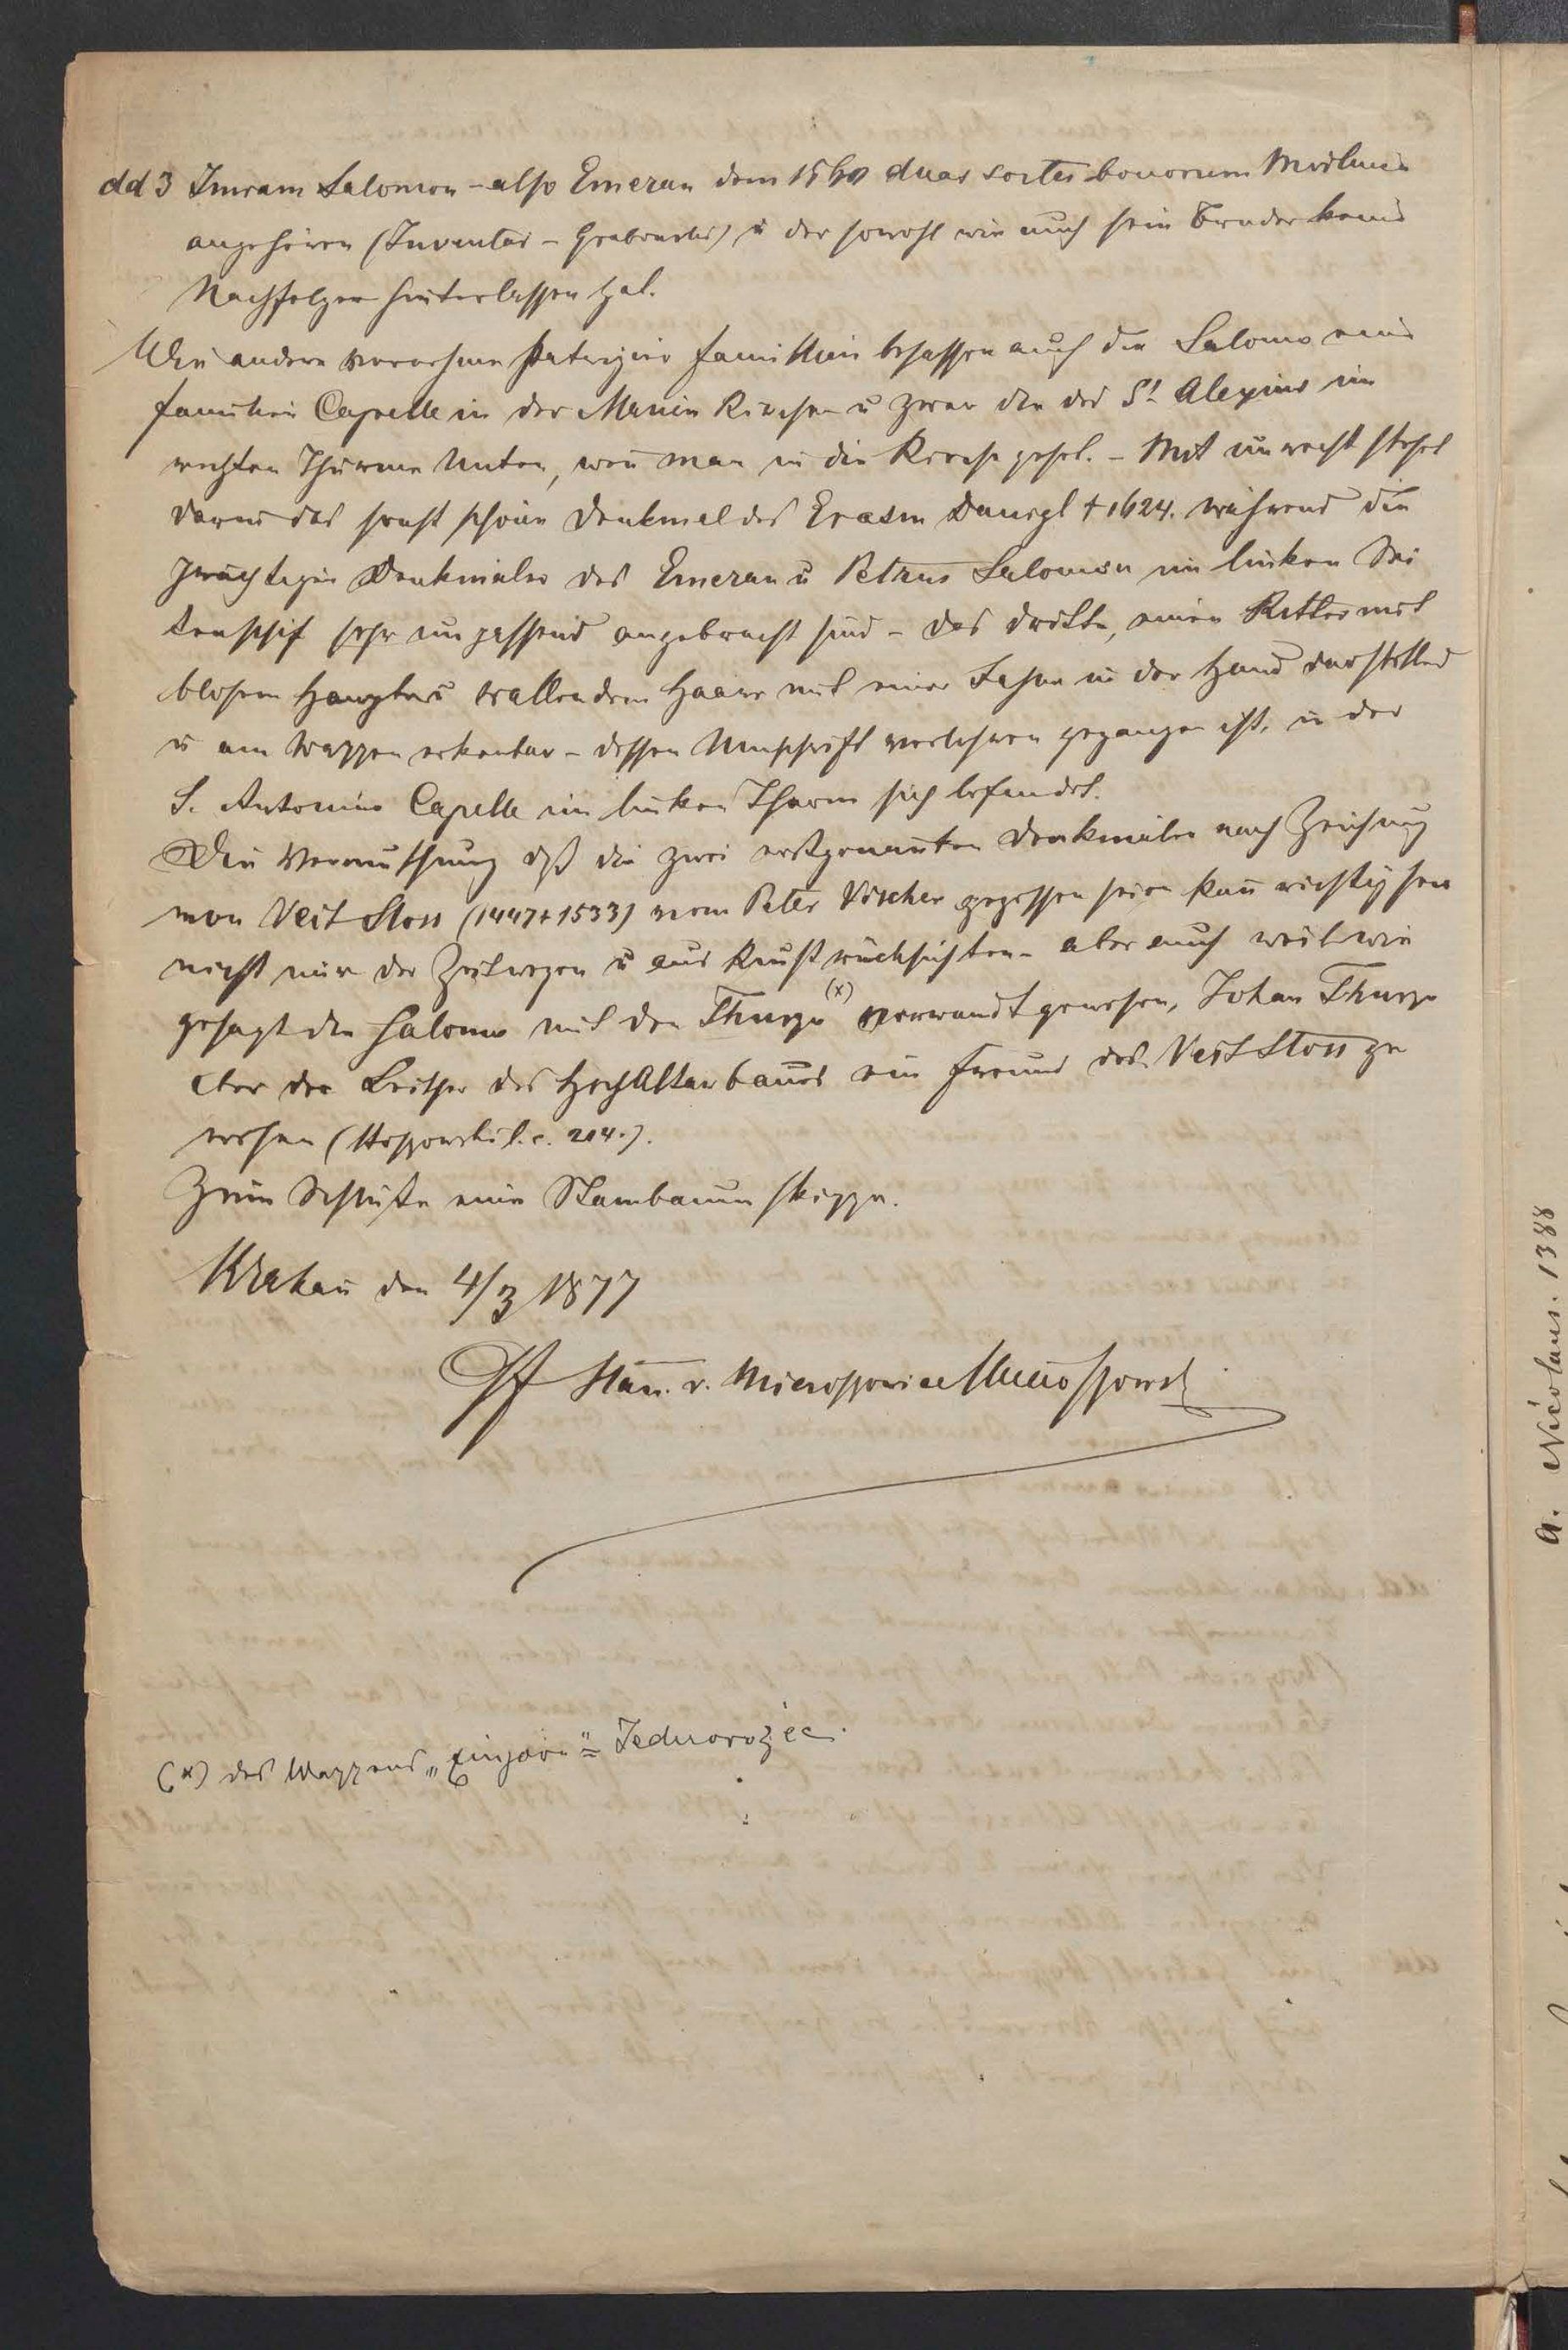 dd 3 Imram Salomon – also Emeran dem 1560 duas sortes bonorum
angehören (Inventar – Grabowski) u der sowohl wie auch sein Bruder keine
Nachfolger hinterlassen hat.
Wie andere vornehme Patrizier familien besassen auch die Salomo eine
familien Capelle in der Marien Kirche u zwar die des St Alexius im
rechten Thurme Unten, wen man in die Kirche gehet. – Mit unrecht stehet
darin das sonst schöne Denkmal des Erasm Danigl † 1624. während die
prächtigen Denkmäler des Emeran u Petrus Salomon im linken Sei
tenschif sehr unpassend angebracht sind – das dritte, einen Ritter mit
blosem Haupte u wallendem Haare mit einer Fahne in der Hand darstellend
u am Wappen erkenbar – dessen Umschrift verlohren gegangen ist, in der
S. Antonius Capelle im linken Thurm sich befindet.
Die Vermuthung dß die zwei erstgenanten Denkmäler nach Zeichnung
von Veit Stoss (1447 † 1533) vom Peter Vischer gegossen seien kan richtig sein
nicht nur der Zeit wegen u aus Kunstrücksichten – aber auch weil wie
gesagt die Salomo mit den Thurzo (x) verwandt gewesen, Johan Thurzo
aber der Leither des HochAltarbaues ein Freund des Veit Stoss ge
wesen (l. c. 204.).
Zum Schluße eine Stambaum skizze.
Krakau den 4/3 1877
Stan. v. Mieroszowice Mieroszowski
(x) des Wappens „Einhorn“ = Jednorożec.
a. Nicolaus. 1388